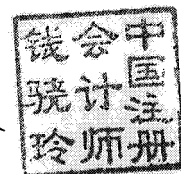 中国注册
会计师
钱骁玲